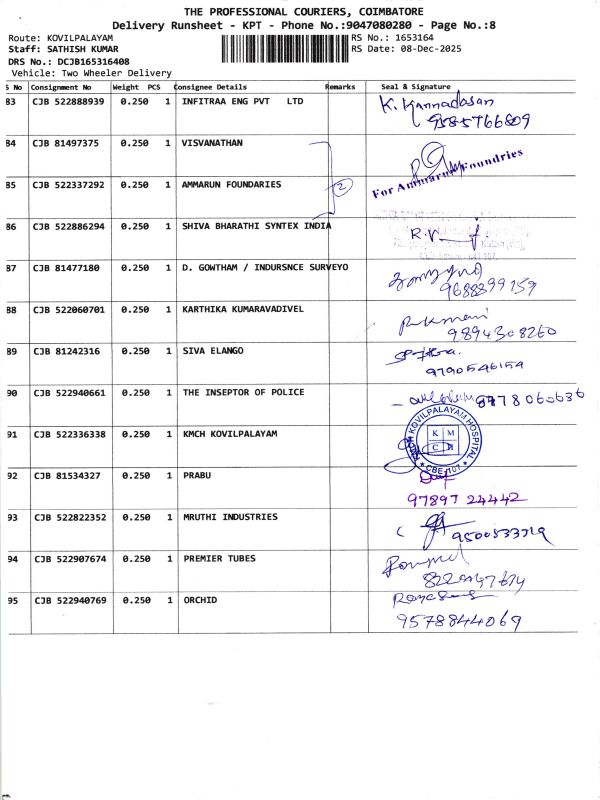 THE PROFESSIONAL COURIERS, COIMBATORE
Delivery Runsheet - KPT - Phone No.:9047080280 - Page No.:8
Route: KOVILPALAYAM RS No.: 1653164
Staff: SATHISH KUMAR RS Date: 08-Dec-2025
DRS No.: DCJB165316408
Vehicle: Two Wheeler Delivery
S No Consignment No Weight PCS Consignee Details Remarks Seal & Signature
83 CJB 522888939 0.250 1 INFITRAA ENG PVT LTD K. Kannadasan
9585766809
84 CJB 81497375 0.250 1 VISVANATHAN
For Ammarun Foundries
85 CJB 522337292 0.250 1 AMMARUN FOUNDARIES 2
86 CJB 522886294 0.250 1 SHIVA BHARATHI SYNTEX INDIA
87 CJB 81477180 0.250 1 D. GOWTHAM / INDURSNCE SURVEYO
9688899159
88 CJB 522060701 0.250 1 KARTHIKA KUMARAVADIVEL
9894308260
89 CJB 81242316 0.250 1 SIVA ELANGO
9790546154
90 CJB 522940661 0.250 1 THE INSEPTOR OF POLICE
91 CJB 522336338 0.250 1 KMCH KOVILPALAYAM KMCH KOVILPALAYAM HOSPITAL
K M
C H
CBE-107
92 CJB 81534327 0.250 1 PRABU
97897 24442
93 CJB 522822352 0.250 1 MRUTHI INDUSTRIES
94 CJB 522907674 0.250 1 PREMIER TUBES
95 CJB 522940769 0.250 1 ORCHID
9578844069